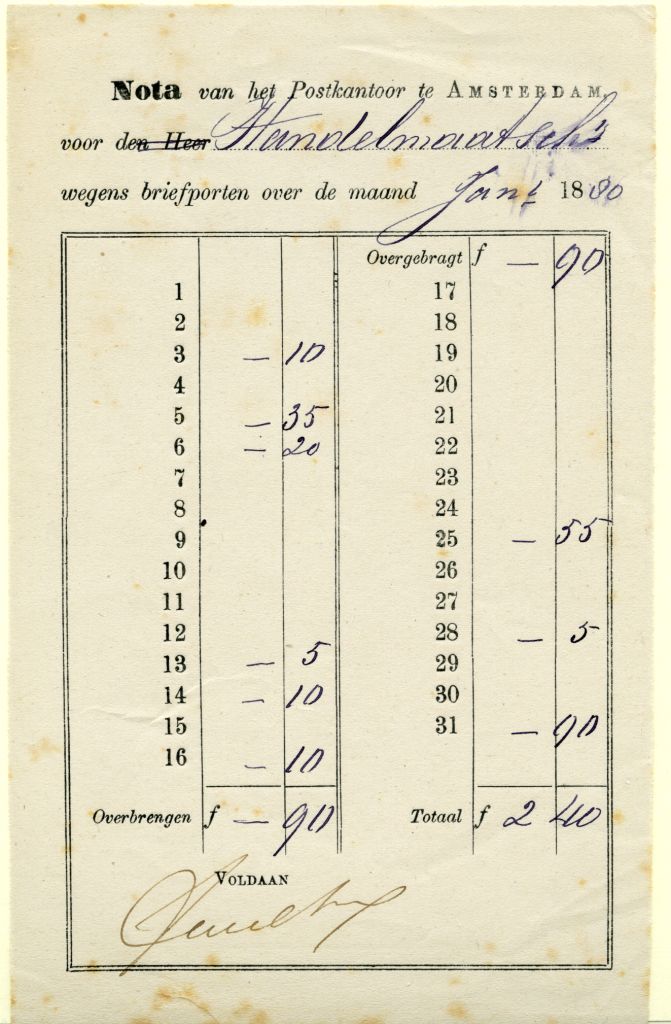 Nota van het Postkantoor te AMSTERDAM,
voor den Heer Handelmaatsch.
wegens briefporten over de maand Jan. 1880
1
2
3 — 10
4
5 — 35
6 — 20
7
8
9
10
11
12
13 — 5
14 — 10
15
16 — 10
Overbrengen f — 90
Overgebragt f — 90
17
18
19
20
21
22
23
24
25 — 55
26
27
28 — 5
29
30
31 — 90
Totaal f 2 40
VOLDAAN